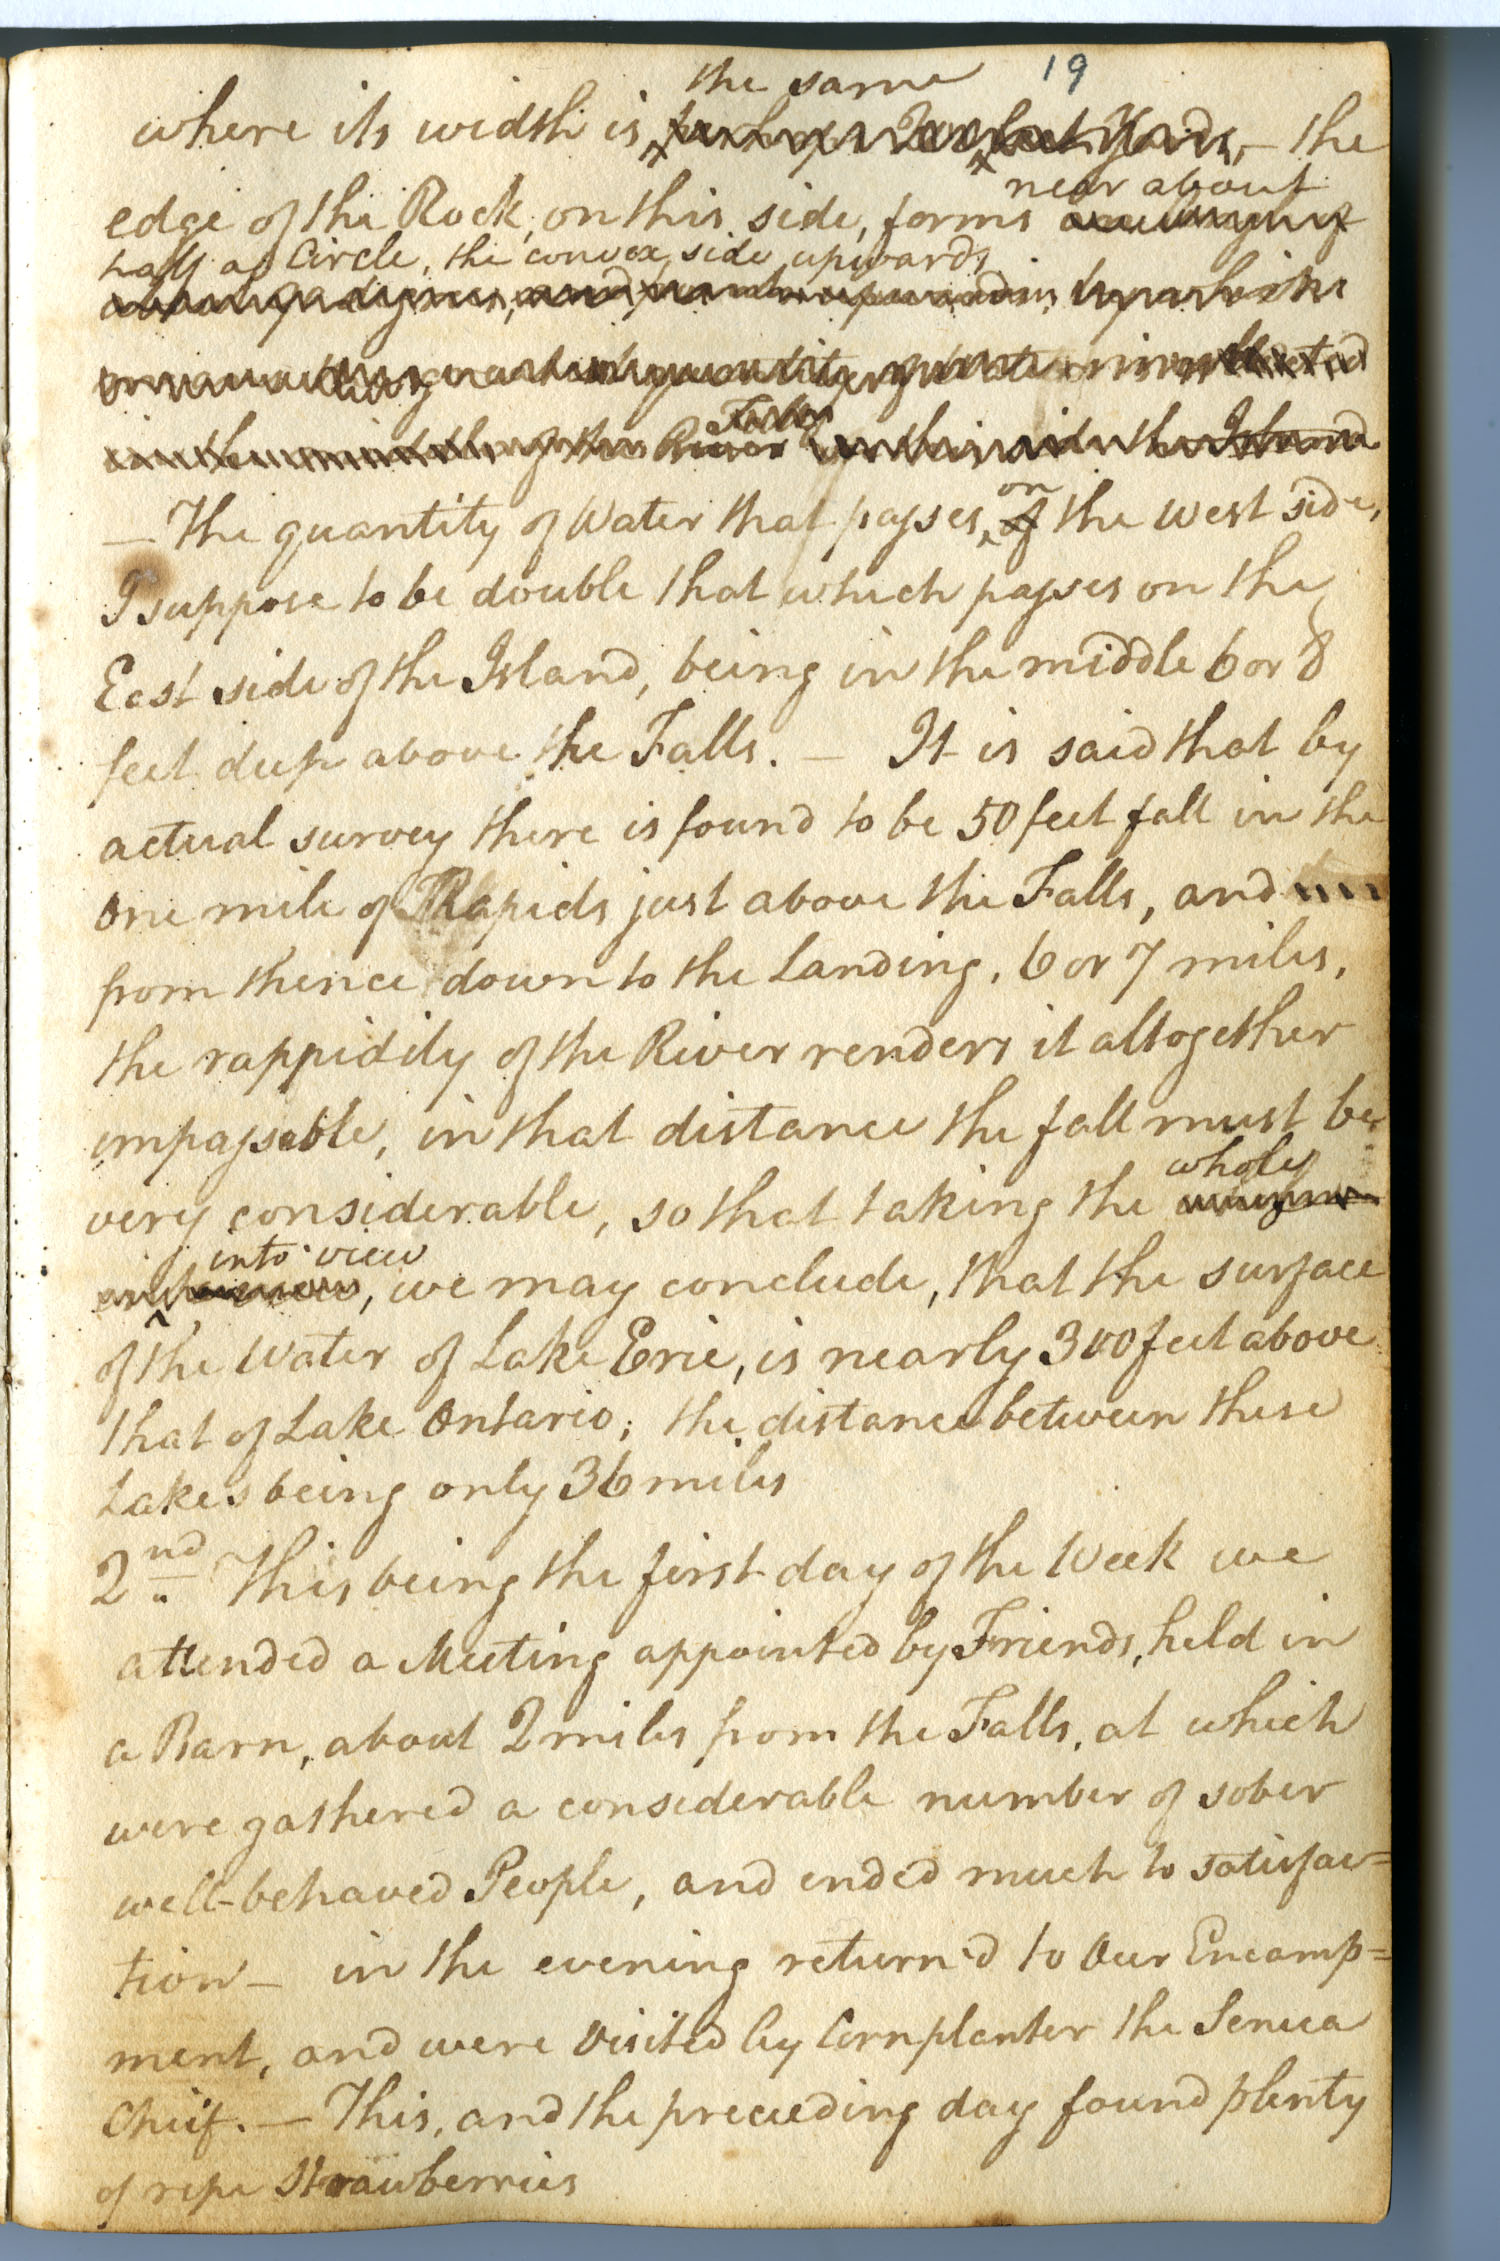 19
the same
where its width is — the
near about
edge of the Rock, on this side, forms
half a Circle, the convex side upwards
Falls
River the Island
on
— The quantity of Water that passes, of the west side,
I suppose to be double that which passes on the
East side of the Island, being in the middle 6 or 8
feet deep above the Falls. — It is said that by
actual survey there is found to be 50 feet fall in the
One mile of Rapids just above the Falls, and
from thence down to the Landing, 6 or 7 miles,
the rappidity of the River renders it altogether
impassable, in that distance the fall must be
whole
very considerable, so that taking the
into view
, we may conclude, that the surface
of the Water of Lake Erie, is nearly 300 feet above
that of Lake Ontario; the distance between these
Lakes being only 36 miles
2nd This being the first day of the Week we
attended a Meeting appointed by Friends, held in
a Barn, about 2 miles from the Falls, at which
were gathered a considerable number of sober
well-behaved People, and ended much to satisfac=
tion — in the evening return'd to Our Encamp=
ment, and were Visited by Cornplanter the Seneca
Chief. — This, and the preceeding day found plenty
of ripe Strawberries